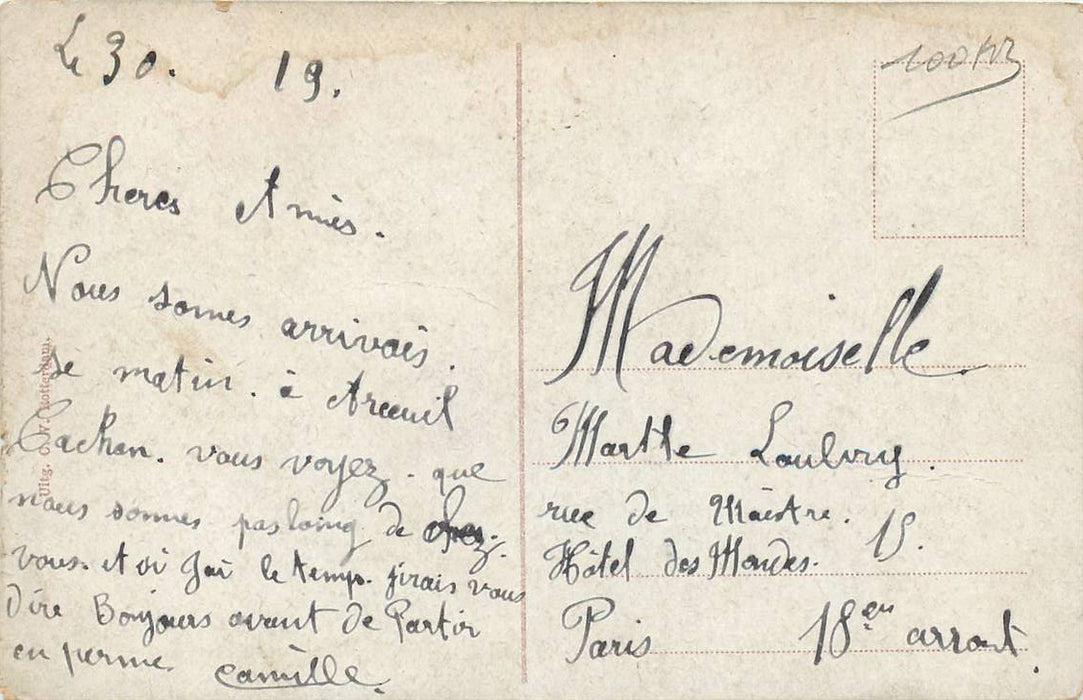 Le 30. 19.
Cheres Amies.
Nous somes arrivais.
se matin. à Arceuil
Cachan. vous voyez. que
nous sommes pas loing de chez.
vous. et si jai le temp. jirais vous
dire Bonjours avant de Partir
en perme
camille.
Uitg. Rotterdam.
Mademoiselle.
Marthe
rue de Maistre. 15.
Hôtel des Mondes.
Paris 18em arront.